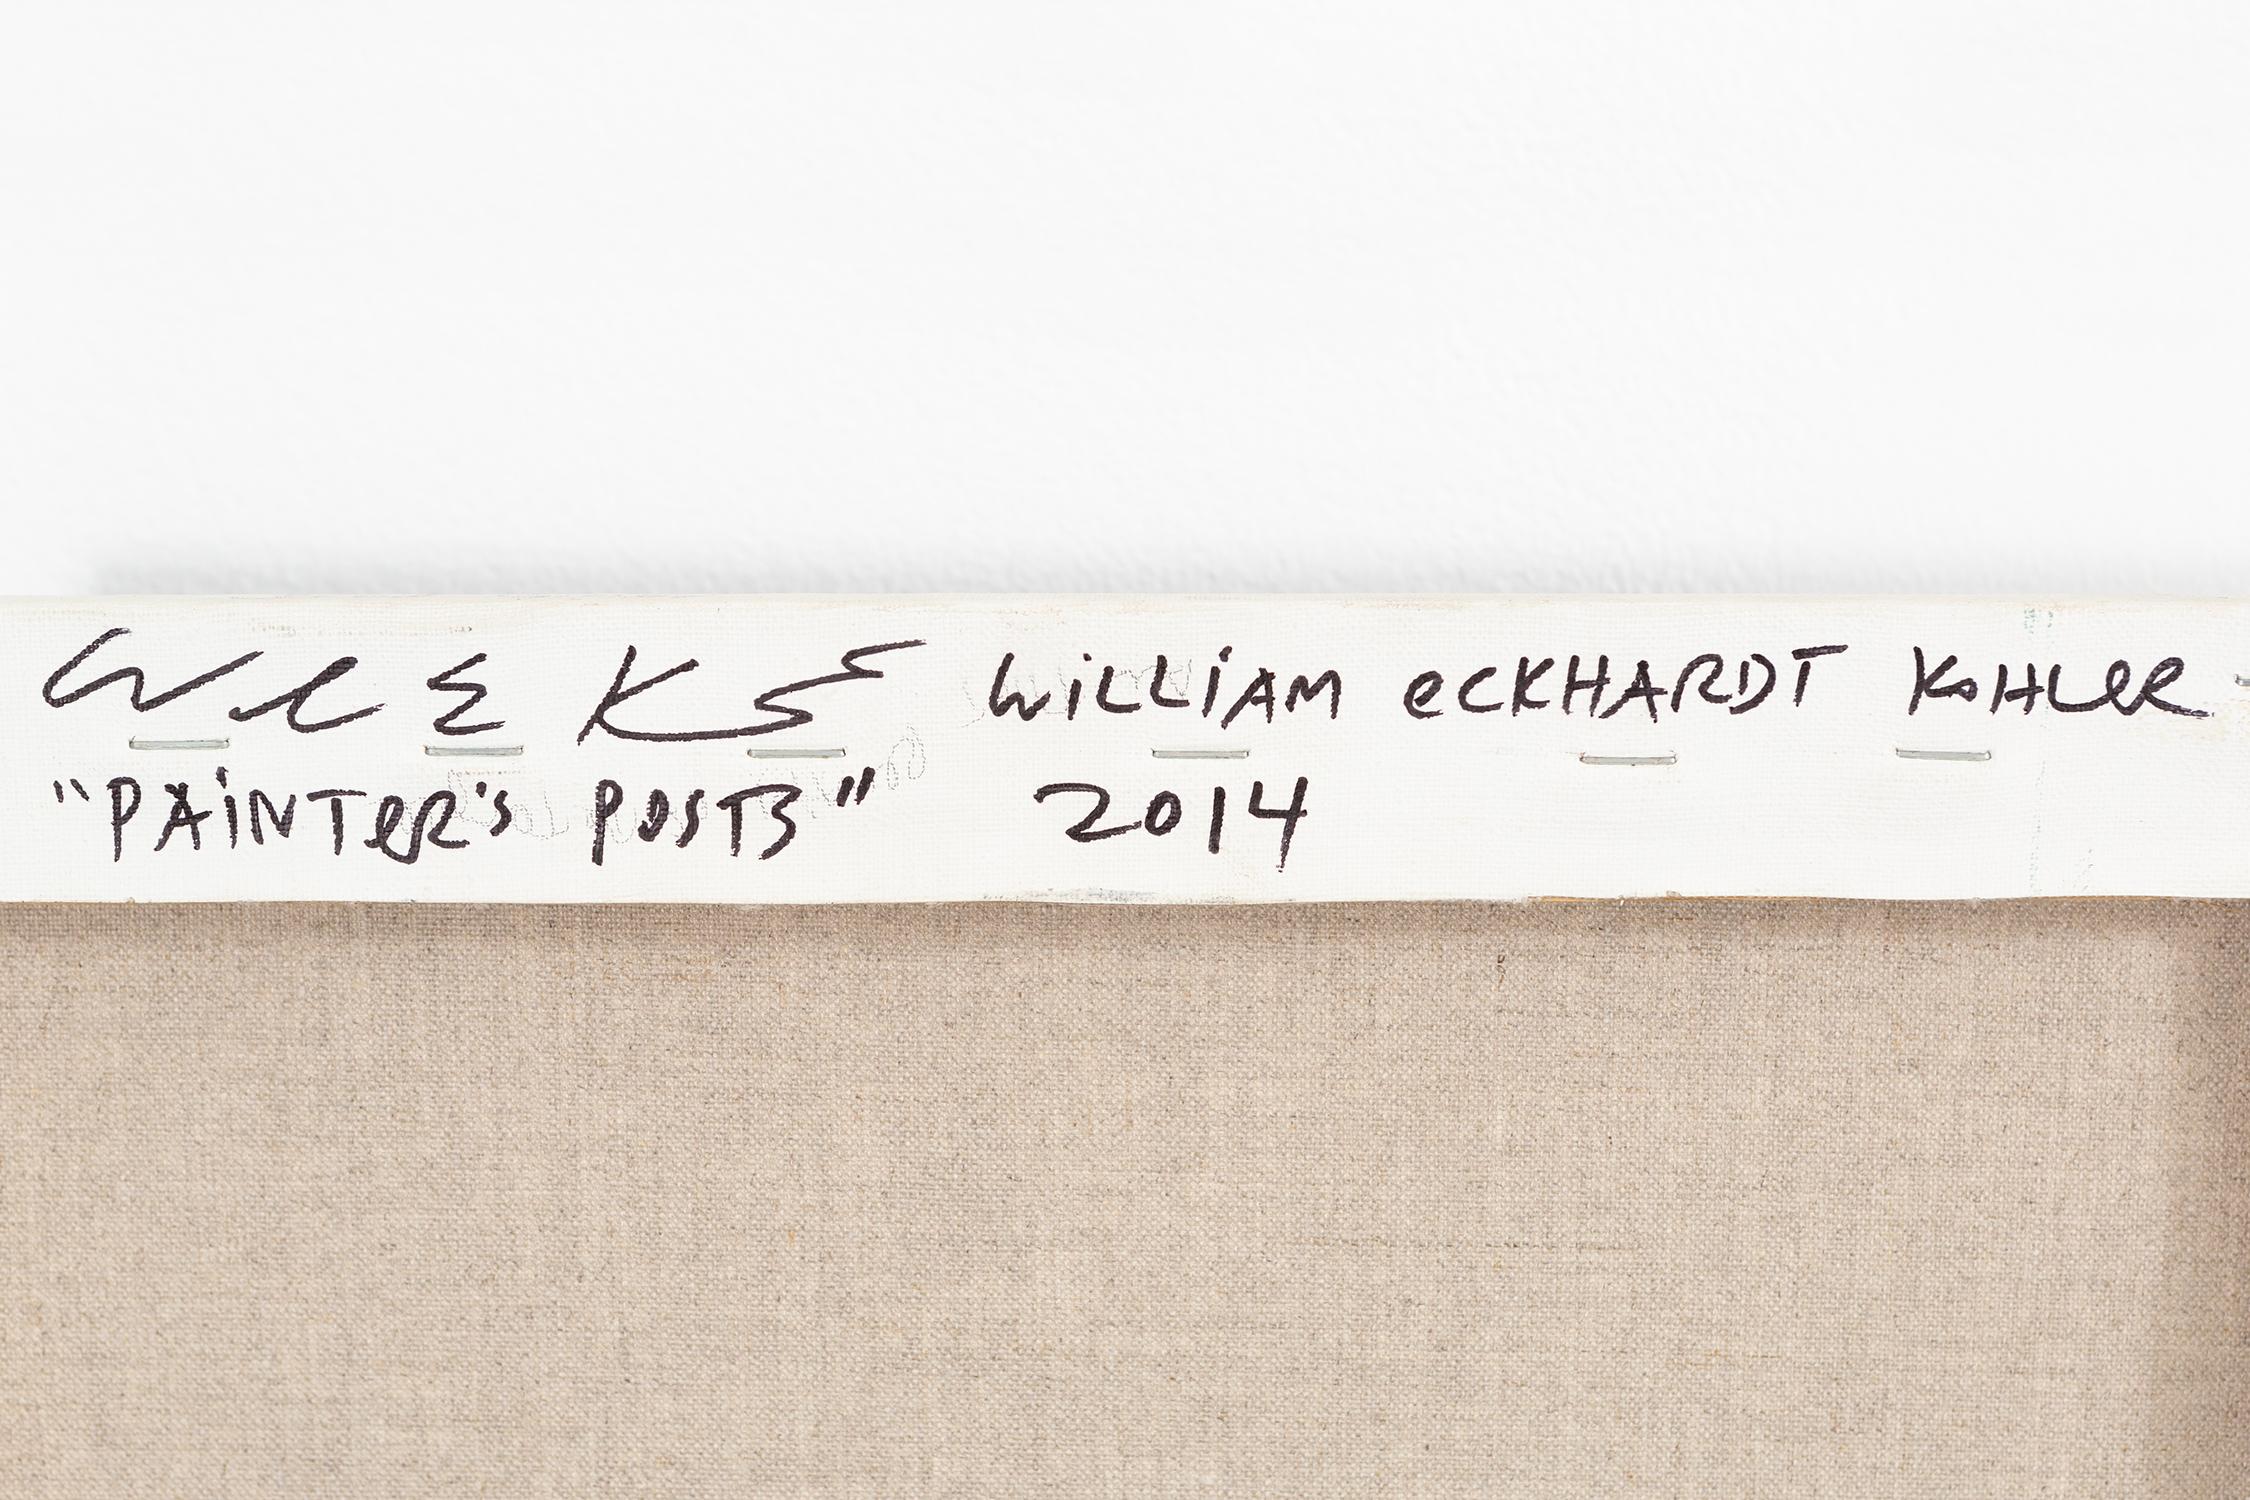 William Eckhardt Kohler
"Painter's Posts" 2014